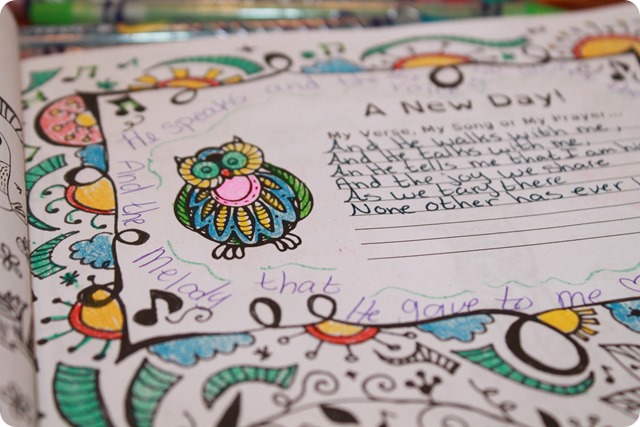 He speaks and
A New Day!
My Verse, My Song or My Prayer...
And He walks with me,
And He talks with me,
An He tells me that I am
And the joy we share
As we tarry there
None other has ever
And the
Melody that
He gave to me